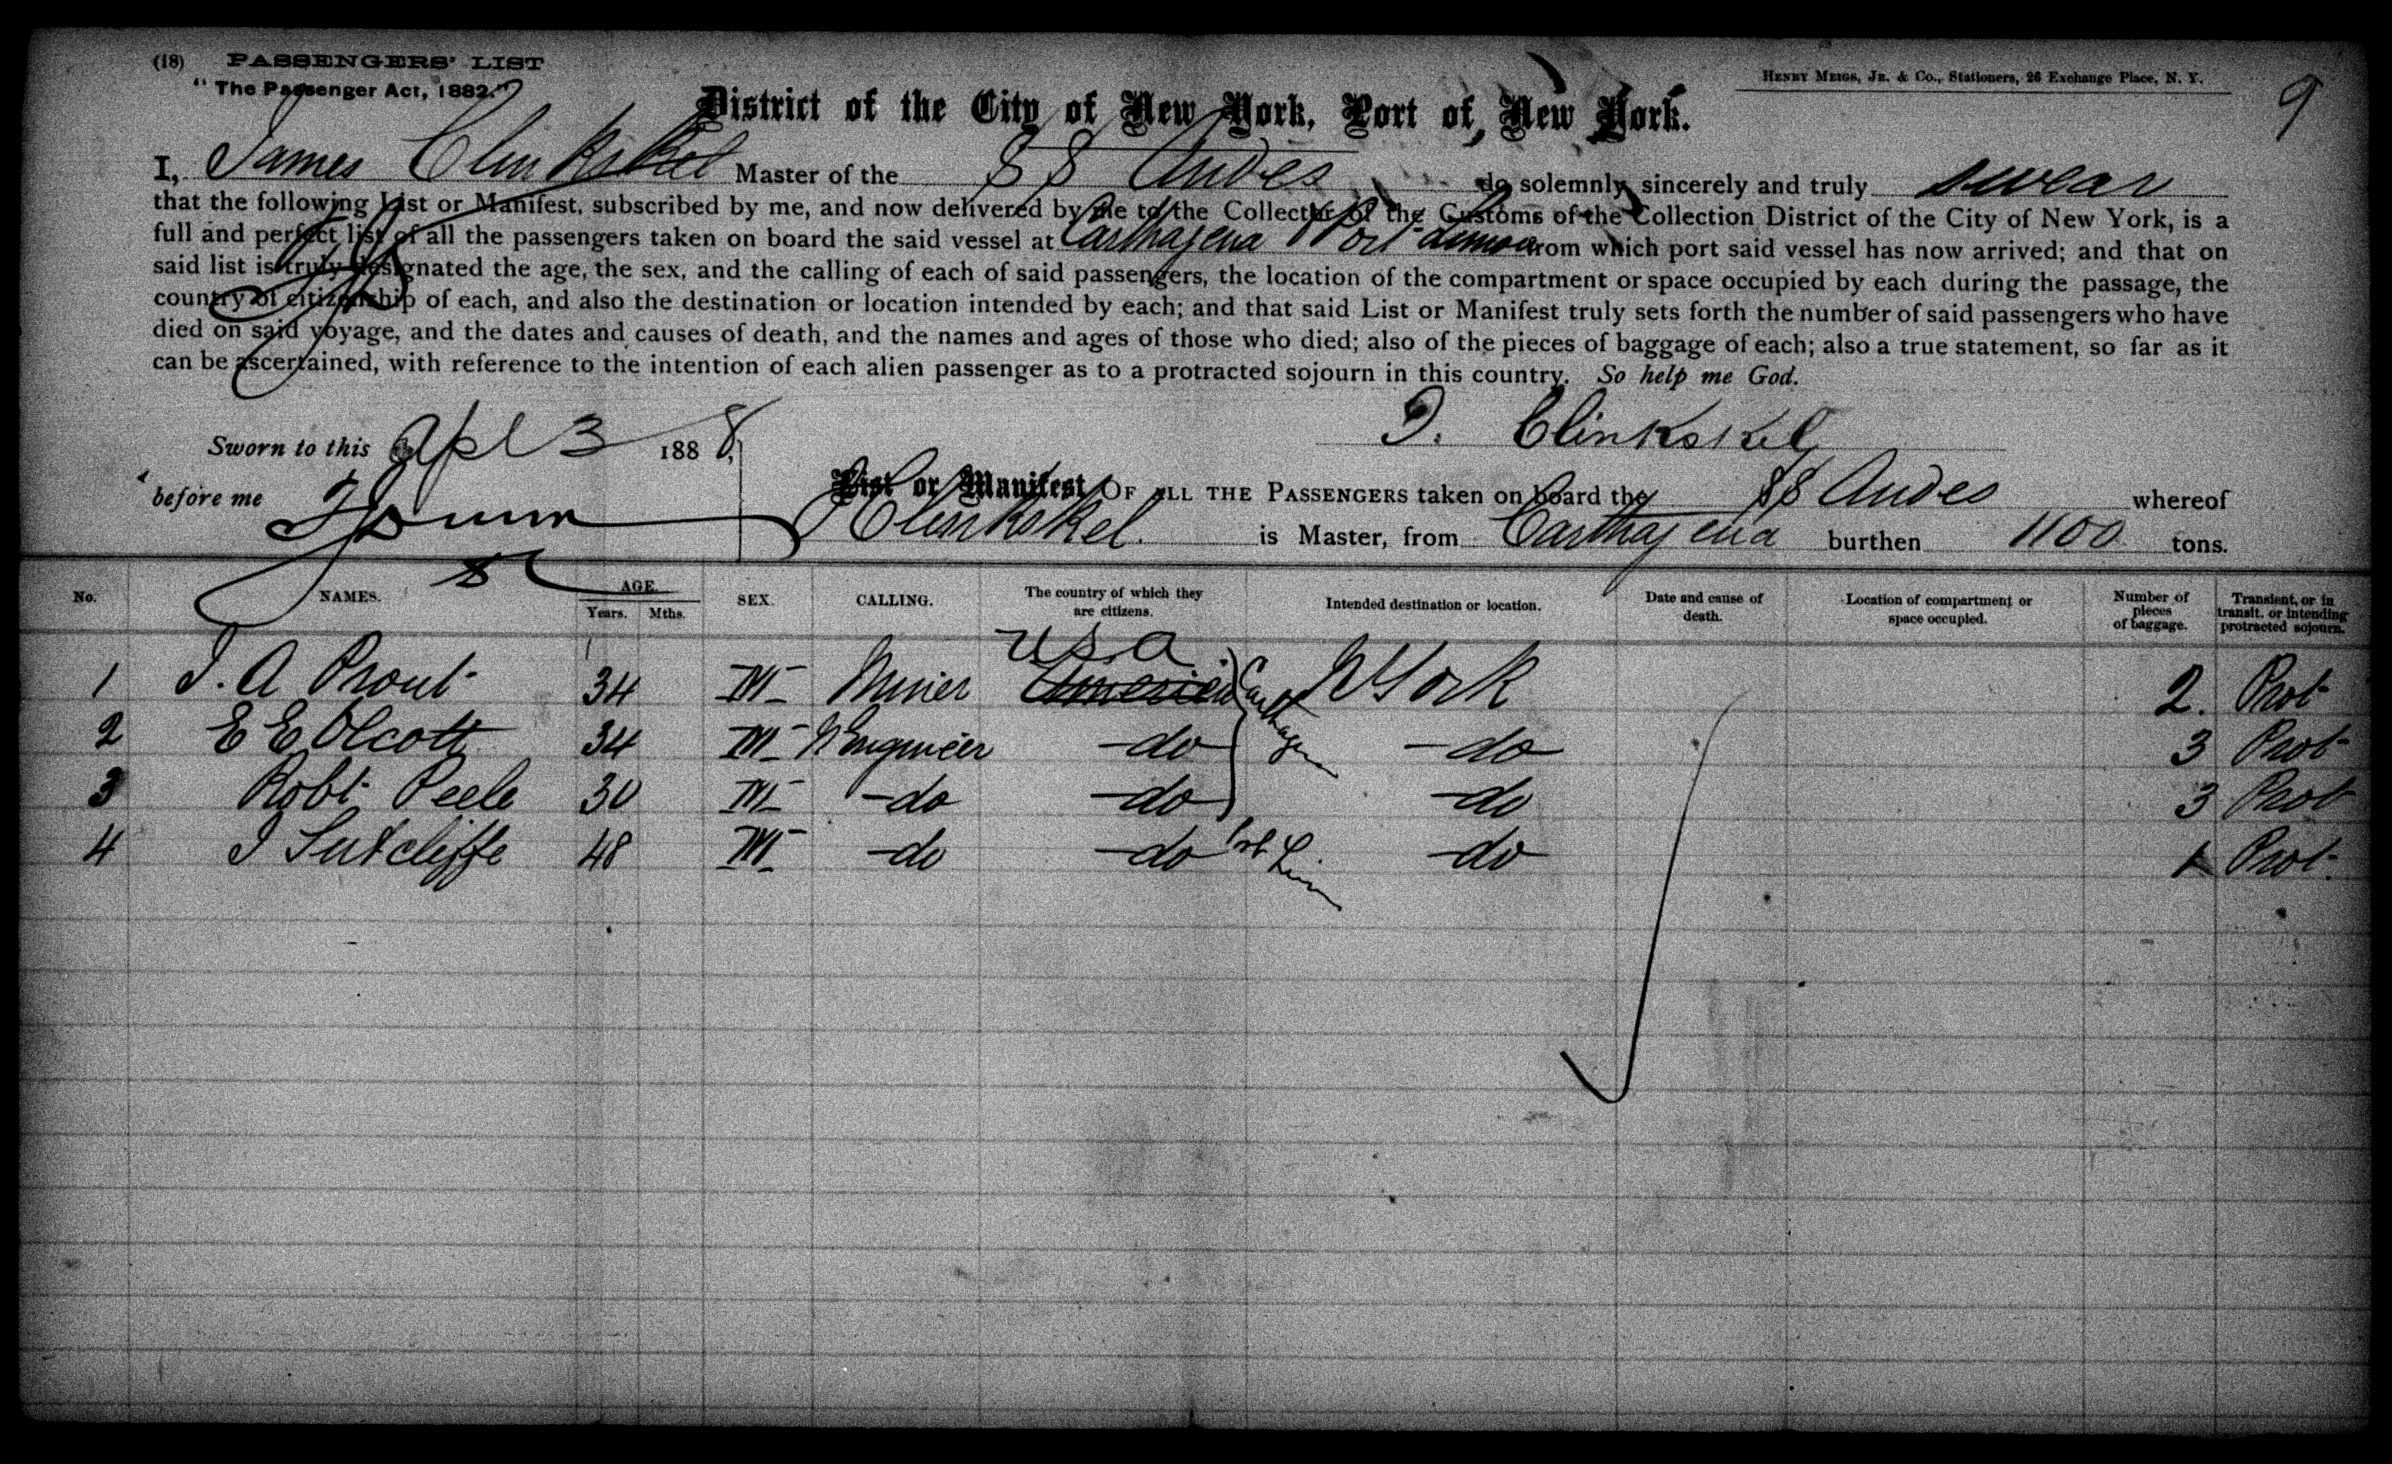 (18) PASSENGERS' LIST
"The Passenger Act, 1882."
HENRY MEIGS, JR. & CO., Stationers, 26 Exchange Place, N. Y.
9
District of the City of New York, Port of New York.
I, James Clinkskel Master of the SS Andes do solemnly, sincerely and truly swear
that the following List or Manifest, subscribed by me, and now delivered by me to the Collector of the Customs of the Collection District of the City of New York, is a
full and perfect list of all the passengers taken on board the said vessel at Carthagena & Port Limon from which port said vessel has now arrived; and that on
said list is truly designated the age, the sex, and the calling of each of said passengers, the location of the compartment or space occupied by each during the passage, the
country of citizenship of each, and also the destination or location intended by each; and that said List or Manifest truly sets forth the number of said passengers who have
died on said voyage, and the dates and causes of death, and the names and ages of those who died; also of the pieces of baggage of each; also a true statement, so far as it
can be ascertained, with reference to the intention of each alien passenger as to a protracted sojourn in this country. So help me God.
J. Clinkskel
Sworn to this Apl 3 1888,
before me
List or Manifest OF ALL THE PASSENGERS taken on board the SS Andes whereof
J Clinkskel. is Master, from Carthagena burthen 1100 tons.
No. NAMES. AGE. Years. Mths. SEX. CALLING. The country of which they are citizens. Intended destination or location. Date and cause of death. Location of compartment or space occupied. Number of pieces of baggage. Transient, or in transit, or intending protracted sojourn.
U.S.A
1 J. A Prout 34 M Miner American Carthagena N York 2. Prot
2 E E Olcott 34 M Engineer -do -do 3 Prot
3 Robt Peele 30 M -do -do -do 3 Prot
4 J Sutcliffe 48 M -do -do Prt Lim -do 1 Prot.